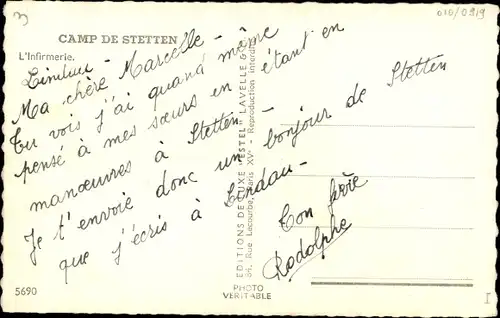 3
010/0919
CAMP DE STETTEN
L'Infirmerie.
Lindau -
Ma chère Marcelle -
Tu vois j'ai quand même
pensé à mes sœurs en étant en
manœuvres à Stetten -
Je t'envoie donc un bonjour de Stetten
que j'écris à Lindau -
Ton frère
Rodolphe
EDITIONS DE LUXE "ESTEL" LAVELLE &
Rue Lacourbe, Paris XV° - Reproduction Interdite
5690
PHOTO
VERITABLE
I